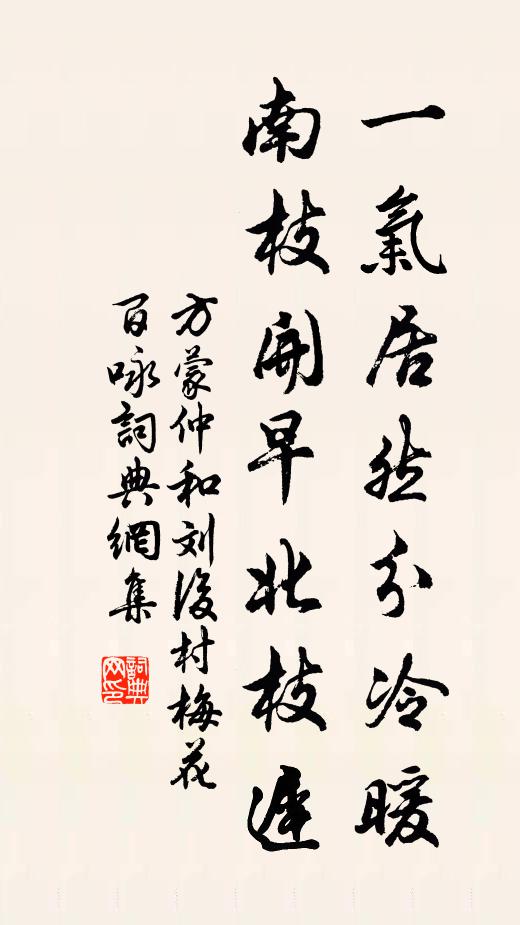 一氣居然分冷暖
南枝開早北枝遲
方蒙仲和刘後村梅花
百咏詞典網集
詞典网印